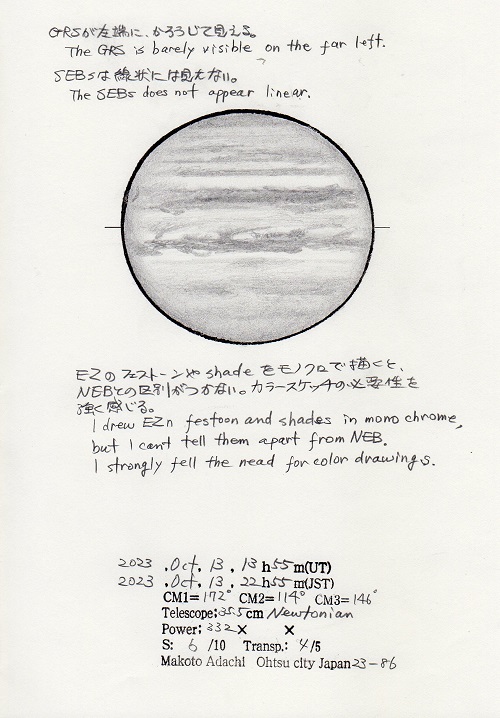 GRSが左端に、かろうじて見える。
The GRS is barely visible on the far left.
SEBsは線状には見えない。
The SEBs does not appear linear.
EZのフェストーンやshadeをモノクロで描くと、
NEBとの区別がつかない。カラースケッチの必要性を
強く感じる。
I drew EZn festoon and shades in mono chrome,
but I can't tell them apart from NEB.
I strongly fell the nead for color drawings.
2023 .Oct. 13 . 13 h55 m(UT)
2023 .Oct. 13 . 22 h55 m(JST)
CM1=172° CM2=114° CM3=146°
Telescope;35.5cm Newtonian
Power; 332× ×
S: 6 /10 Transp.: 4/5
Makoto Adachi Ohtsu city Japan 23-86